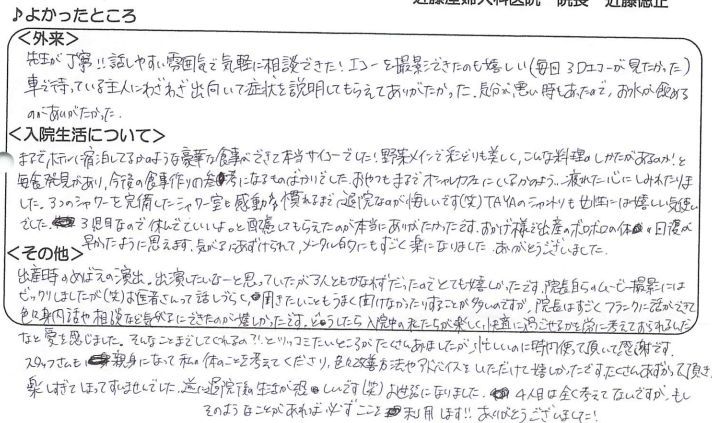 近藤産婦人科医院 院長 近藤徳正
♪よかったところ
<外来>
先生が丁寧!!話しやすい雰囲気で気軽に相談できた!エコーを撮影できたのも嬉しい(毎回3Dエコーが見たかった)
車で待っている主人にわざわざ出向いて症状を説明してもらえてありがたかった。気分が悪い時もあったので、お水が飲める
のがありがたかった。
<入院生活について>
まるでホテルに宿泊してるかのような豪華な食事ができて本当サイコーでした!野菜メインで彩どりも美しく、こんな料理のしかたがあるのか!と
毎食発見があり、今後の食事作りの参考になるものばかりでした。おやつもまるでオシャレカフェにいるかのよう…疲れた心にしみわたりま
した。3つのシャワーを完備したシャワー室も感動!慣れるまでに退院なのが悔しいです(笑)TAYAのシャンリも女性には嬉しい気使い
でした。3児目なので休んでていいよ。と配慮してもらえたのが本当にありがたかったです。おかげ様で出産のボロボロの体の回復が
早かったように思えます。気がるにあずけられて、メンタル的にもすごく楽になりました ありがとうございました。
<その他>
出産時のめばえの演出。出演したいなーと思っていたが3人ともかなわずだったのでとても嬉しかったです。院長自らのムービー撮影には
ビックリしましたが(笑)お医者さんって話しづらく、聞きたいこともうまく聞けなかったりすることが多いのですが、院長はすごくフランクに話ができて
色々身内話や相談など気がるにできたのが嬉しかったです。どうしたら入院中の私たちが楽しく、快適に過ごせるかを常に考えておられるんだ
なと愛を感じました。そんなことまでしてくれるの?!とツッコミたいところがたくさんありましたが、忙しいのに時間使って頂いて感謝です。
スタッフさんも親身になって私の体のことを考えてくださり、色々改善方法やアドバイスをいただけて嬉しかったですたくさんあずかって頂き、
楽しすぎてしまってすいませんでした。逆に退院後の生活が恐しいです(笑)お世話になりました。4人目は全く考えてないですが、もし
そのようなことがあれば必ずここを利用します!!ありがとうございました!